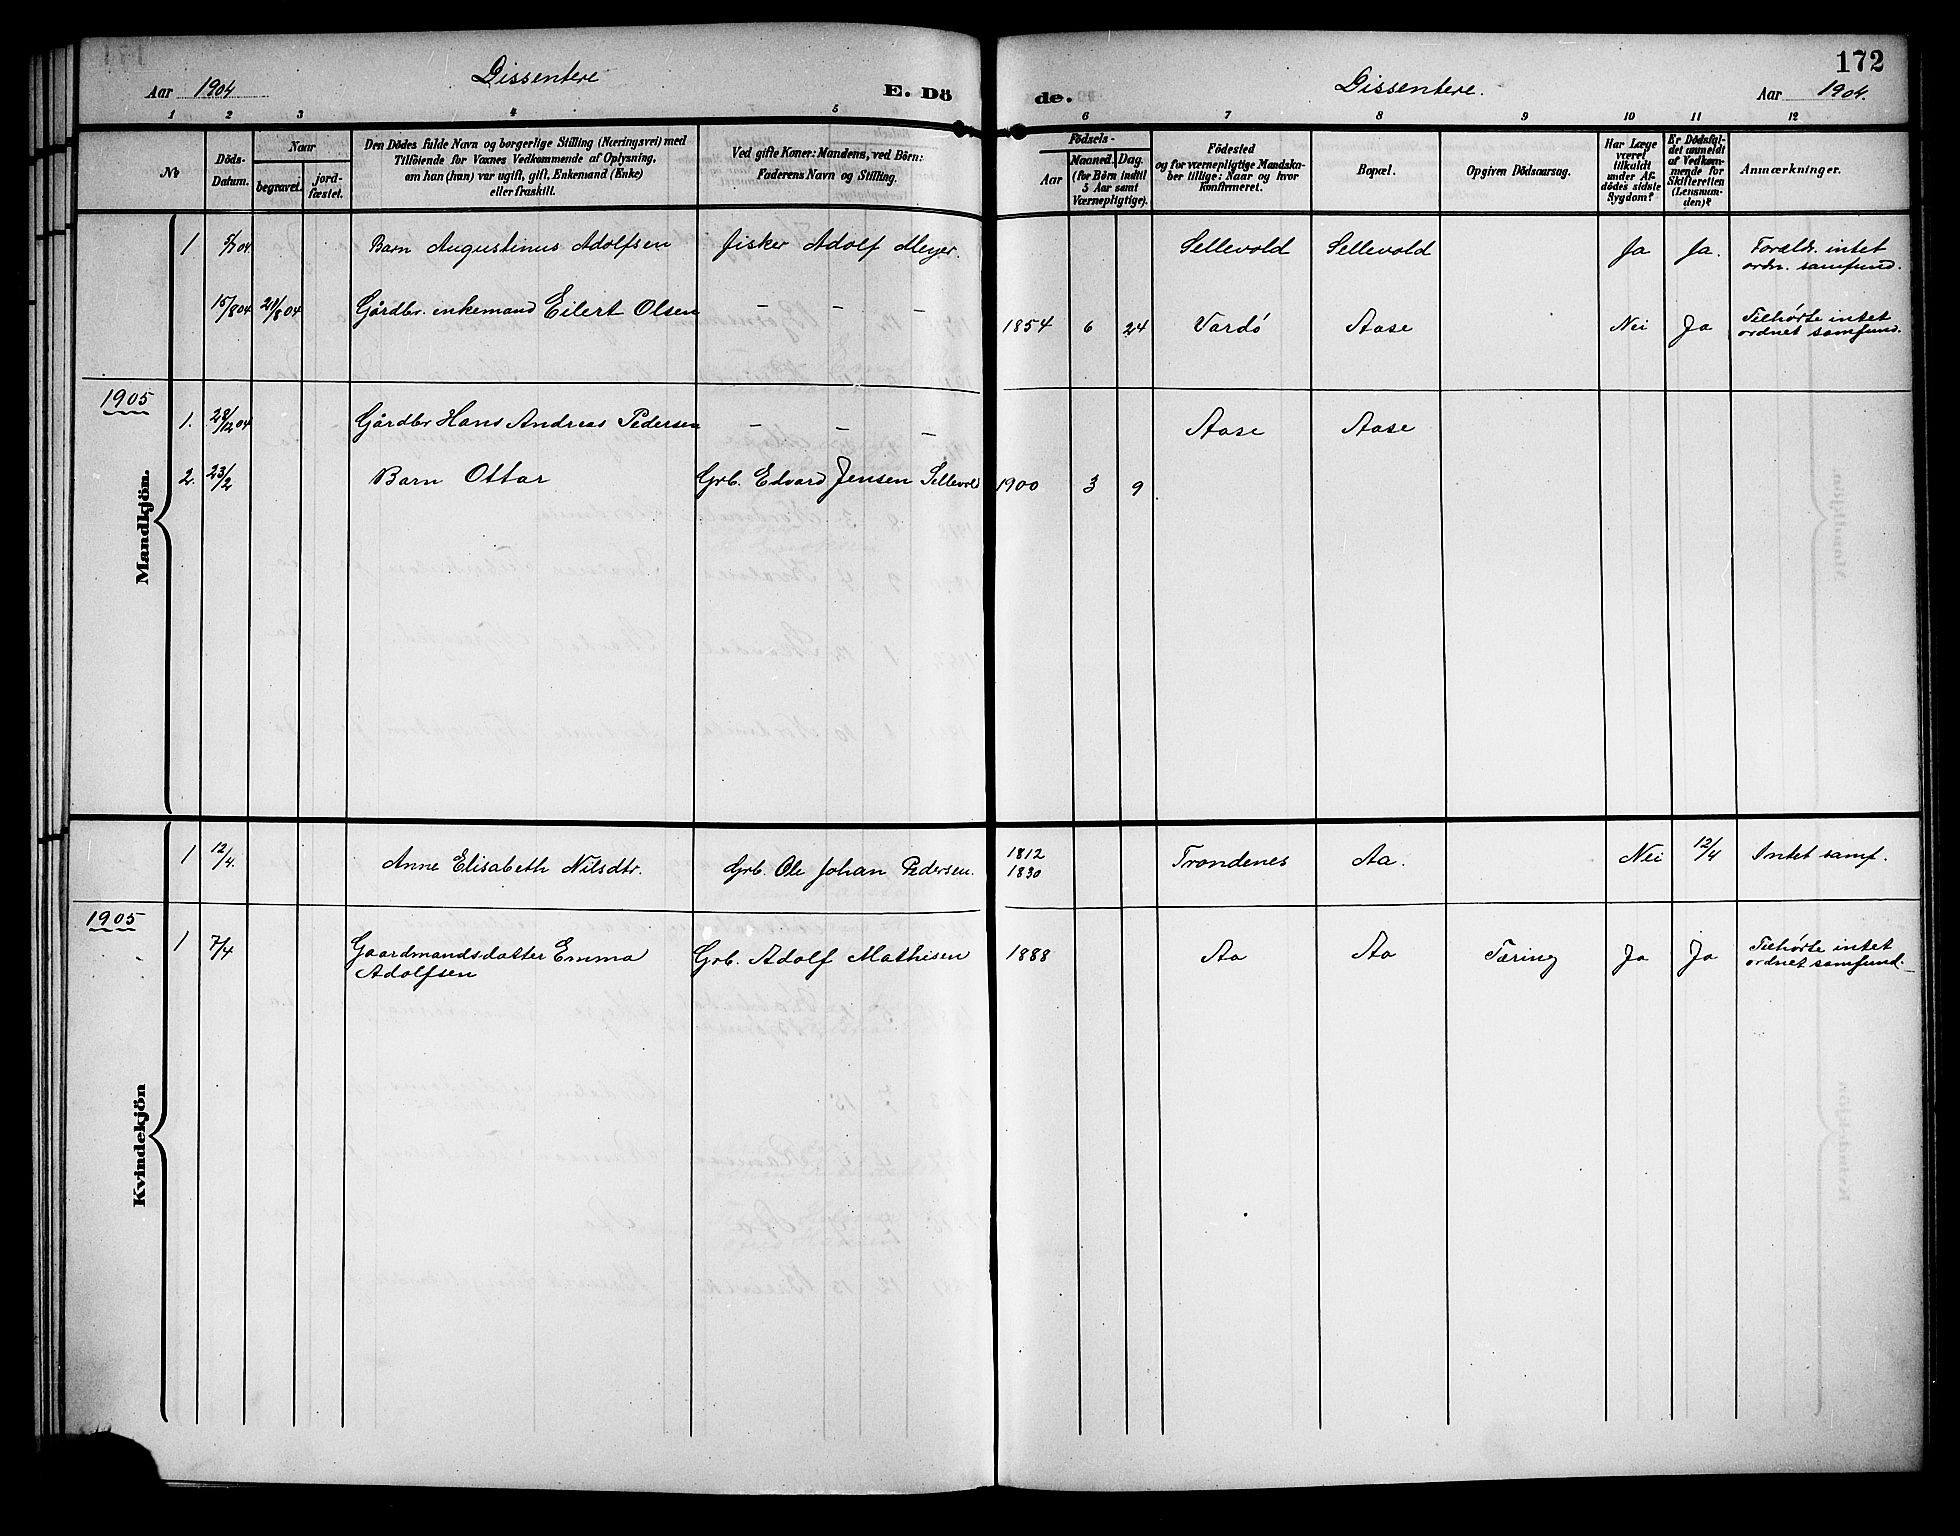 172
Aar 1904 Dissentere E. Dö de. Dissentere. Aar 1904.
1 2 3 4 5 6 7 8 9 10 11 12
No
Döds-
Datum.
Naar
begravet.
jord-
fæstet.
Den Dödes fulde Navn og borgerlige Stilling (Næringsvei) med
Tilföiende for Voxnes Vedkommende af Oplysning,
om han (hun) var ugift, gift, Enkemand (Enke)
eller fraskilt.
Ved gifte Koner: Mandens, ved Börn:
Faderens Navn og Stilling.
Födsels-
Aar
Maaned. Dag.
(for Börn indtil
5 Aar samt
Værnepligtige).
Födested
og for værnepligtige Mandska-
ber tillige: Naar og hvor
konfirmeret.
Bopæl.
Opgiven Dödsaarsag.
Har Læge
været
tilkaldt
under Af-
dödes sidste
Sygdom?
Er Dödsfal-
det anmeldt
af Vedkom-
mende for
Skifteretten
(Lensman-
den)?
Anmærkninger.
Mandkjön.
1 5/7 04 Barn Augustinus Adolfsen fisker Adolf Meyer. Sellevold Sellevold Ja Ja. Foreldr. intet
ordn. samfund.
15/8 04 21/8 04 Gårdbr. enkemand Eilert Olsen – – – 1854 6 24 Vardö Aase Nei Ja Tilhörte intet
ordnet samfund.
1905
1. 28/12 04 Gårdbr Hans Andreas Pedersen – – – Aase Aase
2. 23/2 Barn Ottar Grb. Edvard Jensen Sellevold 1900 3 9
Kvindekjön
1 12/4. Anne Elisabeth Nilsdtr. Grb. Ole Johan Pedersen. 1812
1830 Trondenes Aa. Nei 12/4 Intet samf.
1905
1 7/4 Gaardmandsdatter Emma
Adolfsen Grb. Adolf Mathisen 1888 Aa Aa Tæring Ja Ja Tilhörte intet
ordnet samfund.